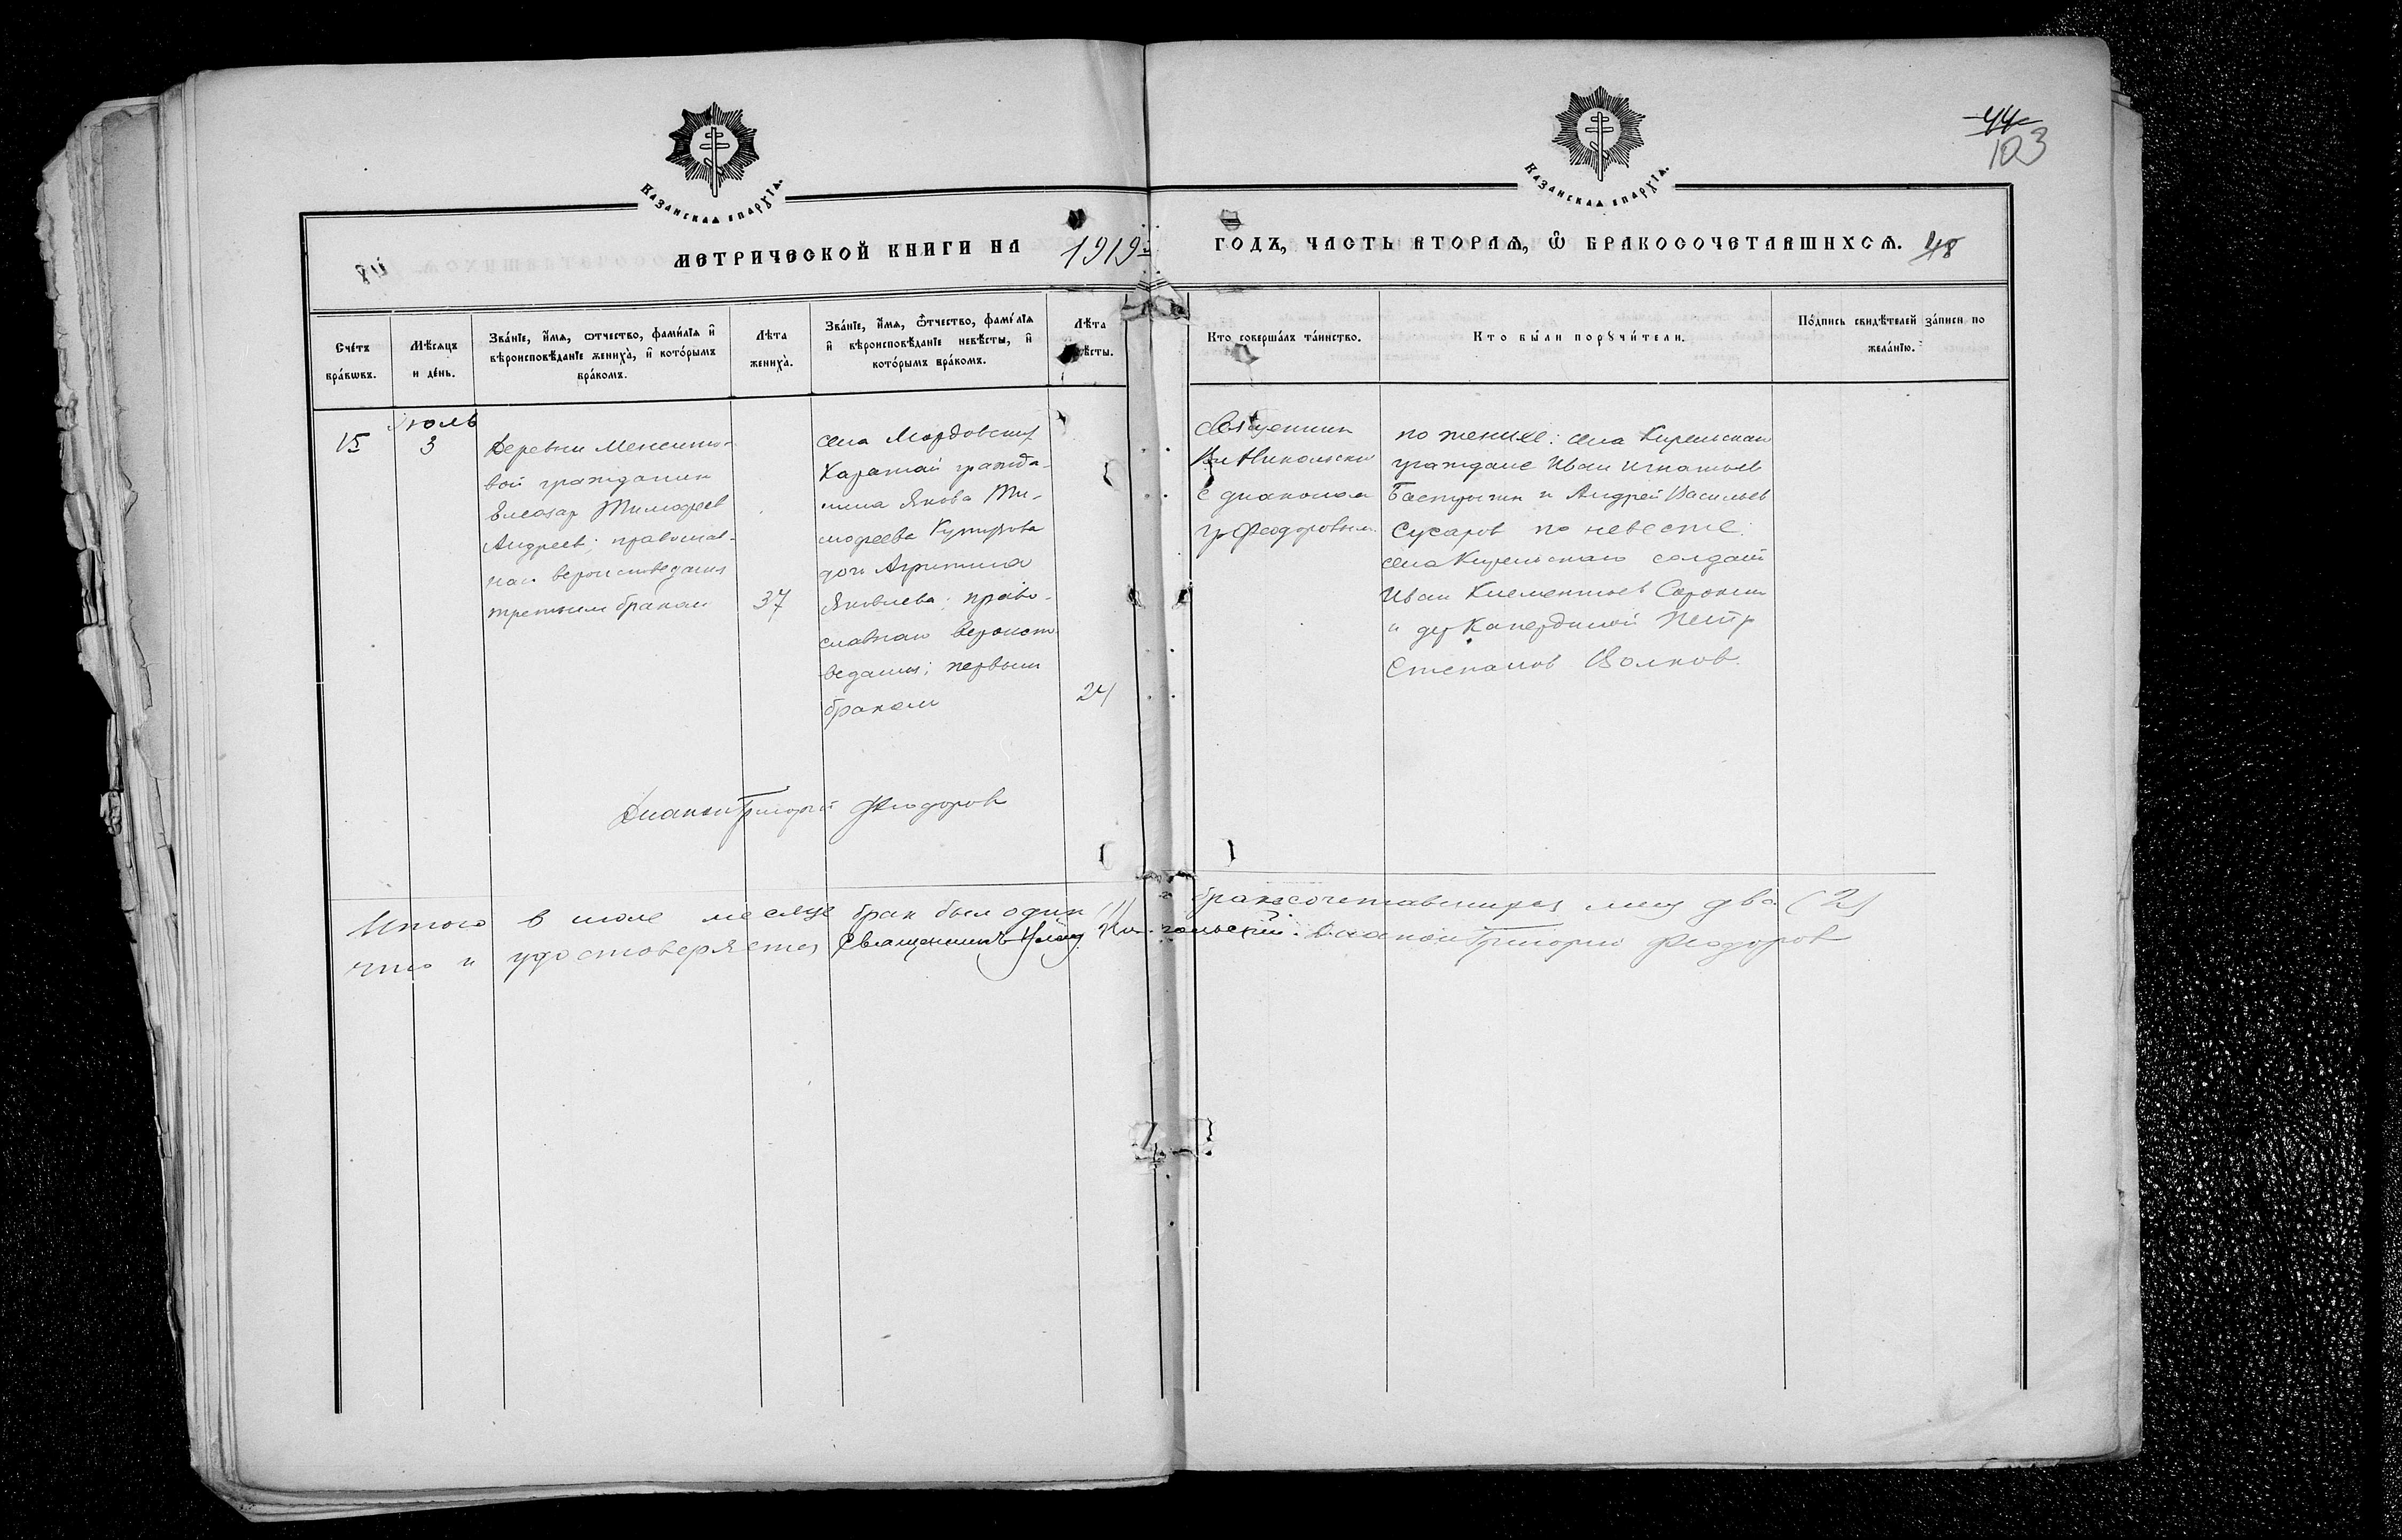 44
103
Казанская епархїѧ.
Казанская епархїѧ.
МЕТРИЧЕСКОЙ КНИГИ НА 1919 ГОДЪ, ЧАСТЬ ВТОРАѦ, Ѿ БРАКОСОЧЕТАВШИХСѦ. 48
Сче́тъ бра́кѡвъ.
Мѣ́сѧцъ и де́нь.
Зва́нїе, и҆́мѧ, ѻтчество, фами́лїѧ и҆ вѣроисповѣ́данїе жениха̀, и҆ кото́рымъ бра́комъ.
Лѣ́та жениха̀.
Зва́нїе, и҆́мѧ, ѻтчество, фами́лїѧ и҆ вѣроисповѣ́данїе невѣ́сты, и҆ кото́рымъ бра́комъ.
Лѣ́та
ѣсты.
Кто соверша́лъ та́инство.
Кто бы́ли порꙋчи́тели.
По́дпись свидѣ́телей за́писи по жела́нїю.
Июль
15
3
Деревни
вой гражданин
Елеазар Тимофеев
Андреев; православ-
наго вероисповедания
третьим браком
37
села Мордовских
Каратай гражда-
нина Якова Ти-
мофеева
дочь Агрипина
Яковлева; право-
славнаго вероиспо-
ведания; первым
браком
24
Священник
Вл Никольский
с диаконом
Гр Феодоровым.
по женихе: села Кирельскаго
граждане Иван Игнатьев
и Андрей Васильев
Сусаров по невесте:
села Кирельскаго солдат
Иван Климентьев Сорокин
и дер Капердиной Петр
Степанов Волков.
Диакон Григорий Феодоров
Итого в июле месяце брак был один (1) бракосочетавшихся лиц два (2)
что и удостоверяется Священникъ Никольский. Диакон Григорий Феодоров